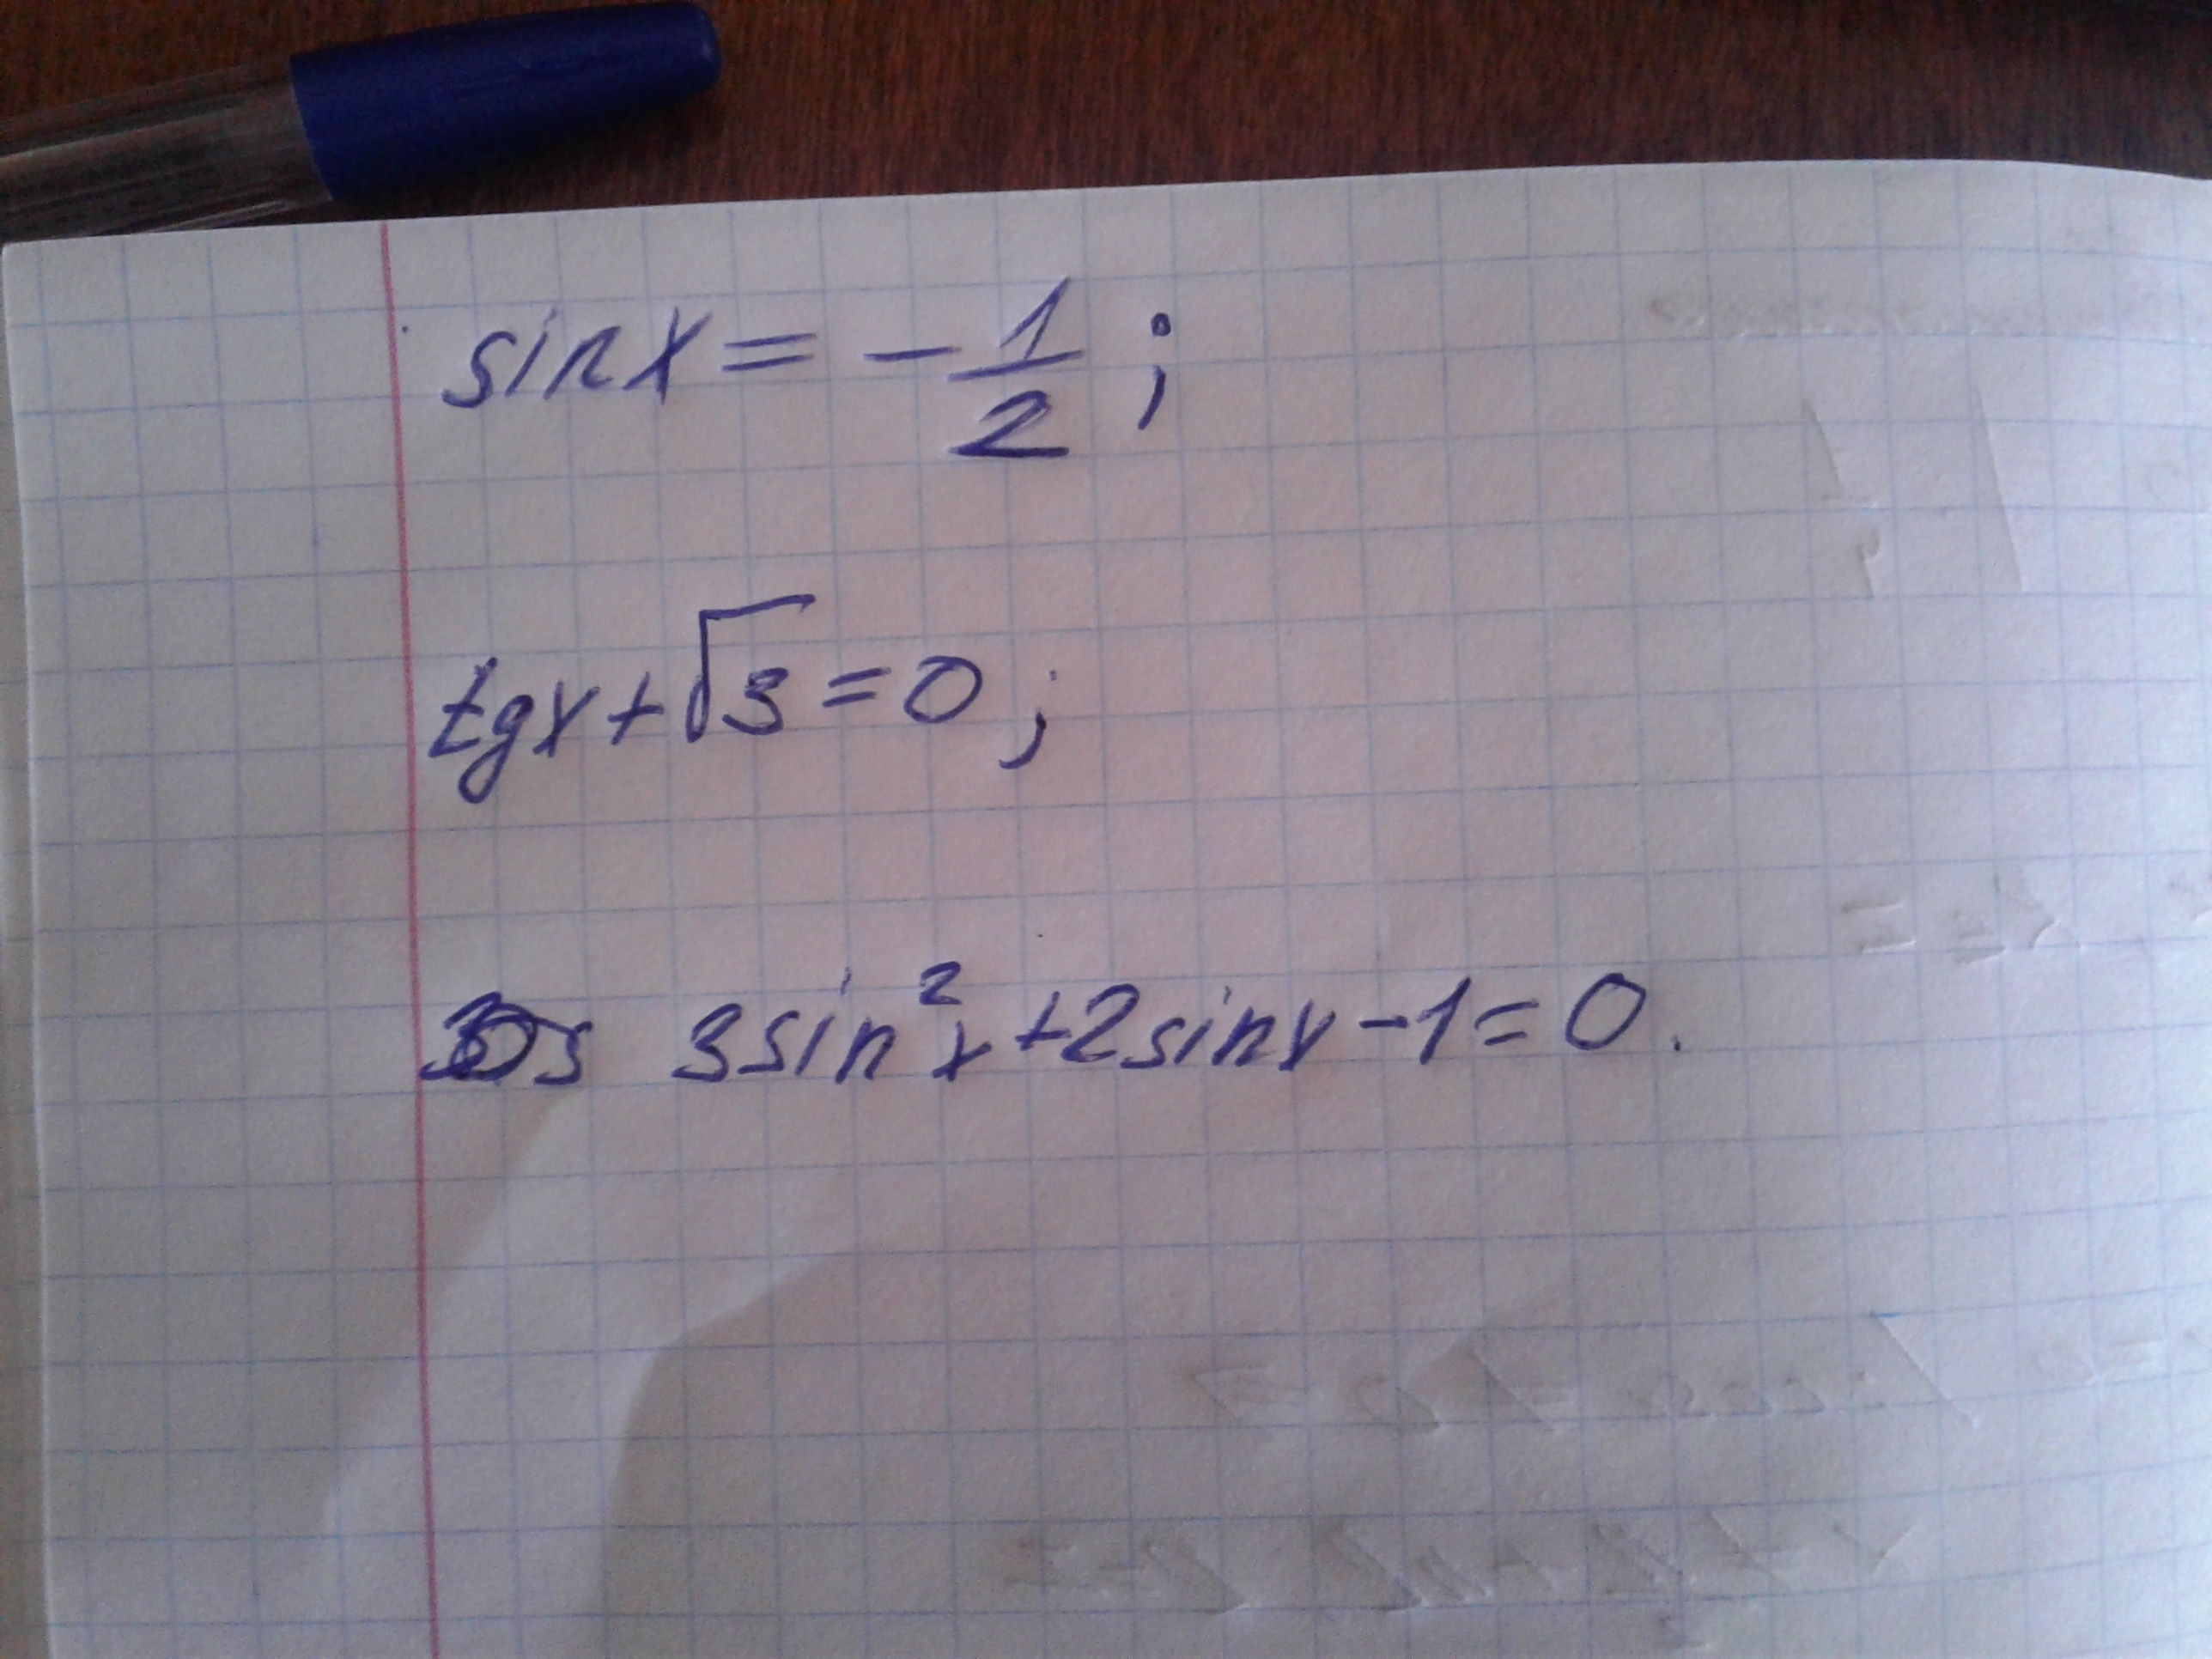 sinx = -1/2;
tgx+√3=0;
3sin²x+2sinx-1=0.